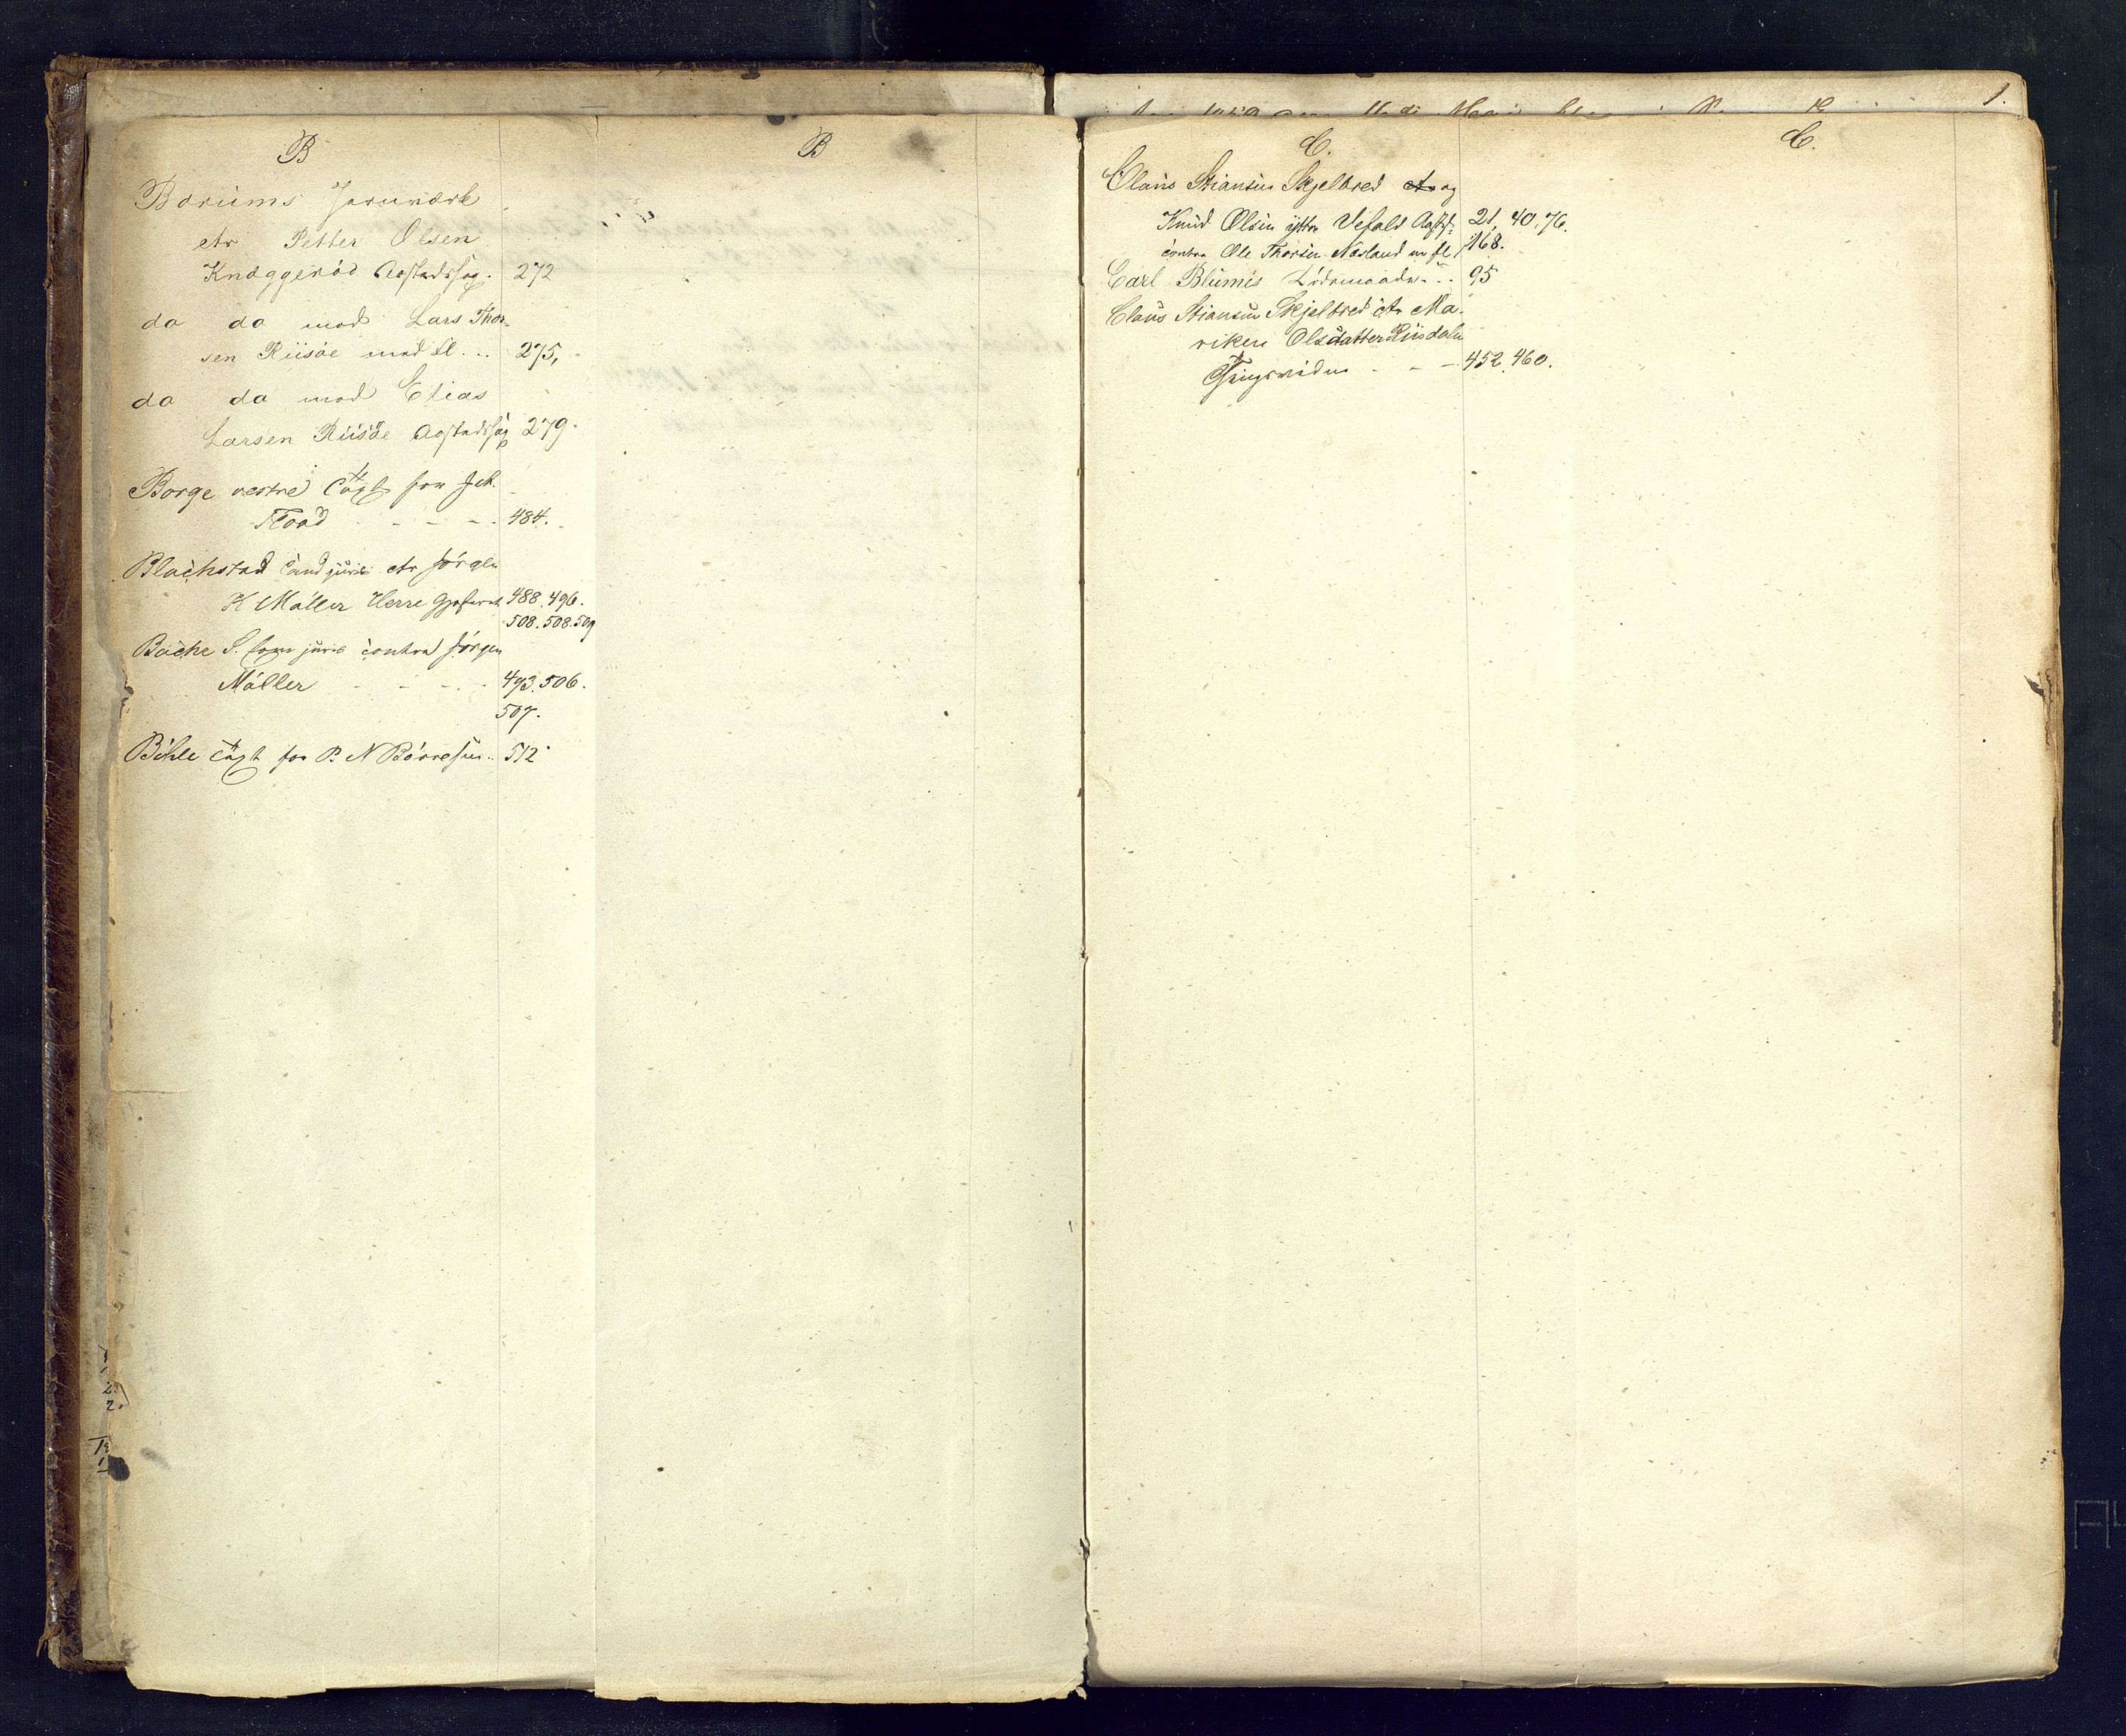 B
Bærums Jernværk
ctr Petter Olsen
Knaggerød Aastedssag. 272
do do mod Lars Thor-
sen Riisøe med fl... 275,
do do mod Elias
Larsen Riisøe Aastedssag 279.
Borge vestre for Joh.
Flood - - - - 484.
Blackstad Cand juris ctr Jørgen
K Møller Herre 488. 496.
508. 508. 509
Bache S. juris contra Jørgen
Møller - - - - 493. 506.
507.
Bøhle for P. N Børresen.. 512
B
C.
Claus Stiansen Skjelbred ctr og
Knud Olsen yttre Vefald 21, 40, 76.
contra Ole Thorsen Næsland m fl 168.
Carl Blumes 95
Claus Stiansen Skjelbred ctr Ma-
riken Olsdatter Riisdalen
Thingsvidne - - - 452. 460.
C.
1.